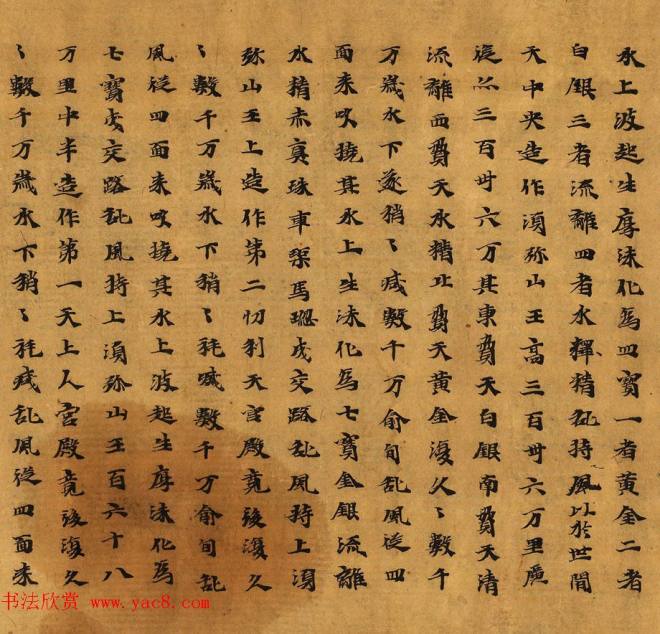 水上波起生厚沫化為四寶一者黃金二者
白銀三者流離四者水精乱持風以於世間
天中央造作湏弥山王高三百卅六万里廣
從亦三百卅六万其東費天白銀南費天清
流離西費天水精北費天黃金復久〻數千
万歲水下遂稍〻咸數千万俞旬乱風從四
面来吹撓其水上生沫化為七寶金銀流離
水精赤真珠車𤦲馬瑙戊交路乱風持上湏
弥山王上造作第二忉利天官殿竟後復久
〻數千万歲水下稍〻耗咸數千万俞旬乱
風從四面来吹撓其水上波起生厚沫化為
七寶戊交路乱風持上湏弥山王百六十八
万里中半造作第一天上人宮殿竟後復久
〻數千万歲水下稍〻耗咸乱風從四面来
书法欣赏 www.yac8.com